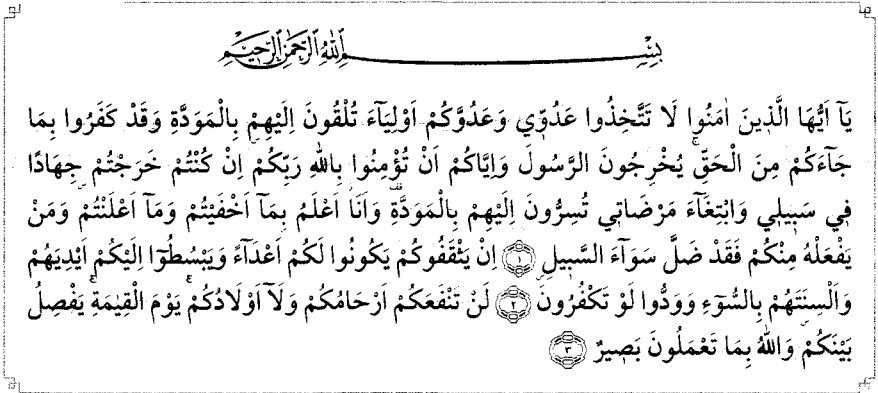 بِسْمِ اللّٰهِ الرَّحْمٰنِ الرَّحٖيمِ
يَآ اَيُّهَا الَّذٖينَ اٰمَنُوا لَا تَتَّخِذُوا عَدُوّٖي وَعَدُوَّكُمْ اَوْلِيَآءَ تُلْقُونَ اِلَيْهِمْ بِالْمَوَدَّةِ وَقَدْ كَفَرُوا بِمَا
جَآءَكُمْ مِنَ الْحَقِّۚ يُخْرِجُونَ الرَّسُولَ وَاِيَّاكُمْ اَنْ تُؤْمِنُوا بِاللّٰهِ رَبِّكُمْۜ اِنْ كُنْتُمْ خَرَجْتُمْ جِهَادًا
فٖي سَبٖيلٖي وَابْتِغَآءَ مَرْضَاتٖي تُسِرُّونَ اِلَيْهِمْ بِالْمَوَدَّةِۗ وَاَنَا۬ اَعْلَمُ بِمَآ اَخْفَيْتُمْ وَمَآ اَعْلَنْتُمْۜ وَمَنْ
يَفْعَلْهُ مِنْكُمْ فَقَدْ ضَلَّ سَوَآءَ السَّبٖيلِ ﴿١﴾ اِنْ يَثْقَفُوكُمْ يَكُونُوا لَكُمْ اَعْدَآءً وَيَبْسُطُٓوا اِلَيْكُمْ اَيْدِيَهُمْ
وَاَلْسِنَتَهُمْ بِالسُّٓوءِ وَوَدُّوا لَوْ تَكْفُرُونَۜ ﴿٢﴾ لَنْ تَنْفَعَكُمْ اَرْحَامُكُمْ وَلَآ اَوْلَادُكُمْۚ يَوْمَ الْقِيٰمَةِۚ يَفْصِلُ
بَيْنَكُمْۜ وَاللّٰهُ بِمَا تَعْمَلُونَ بَصٖيرٌ ﴿٣﴾